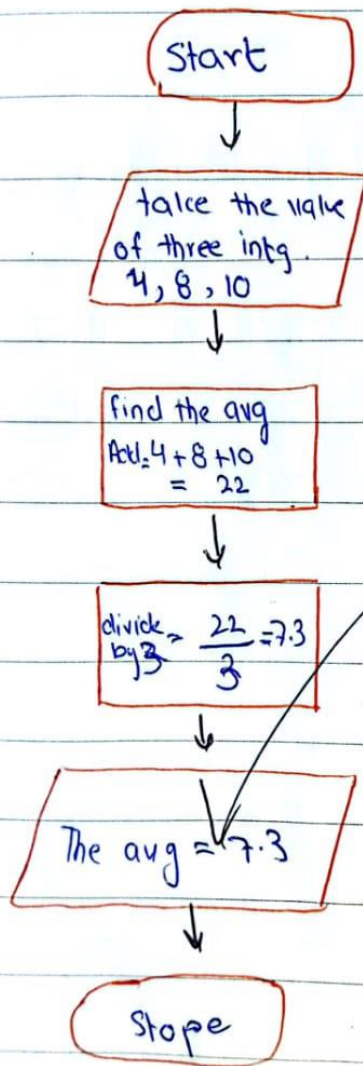 Start
take the value
of three intg.
4, 8, 10
find the avg
Add = 4 + 8 + 10
= 22
divide by 3 = 22/3 = 7.3
The avg = 7.3
Stope